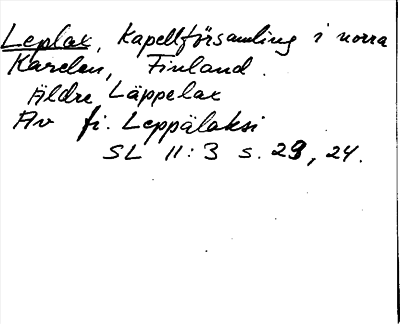 Leplax, Kapellförsamling i norra
Karelen, Finland.
Äldre Läppelax
Av fi. Leppälaksi
SL 11:3 s. 29, 24.